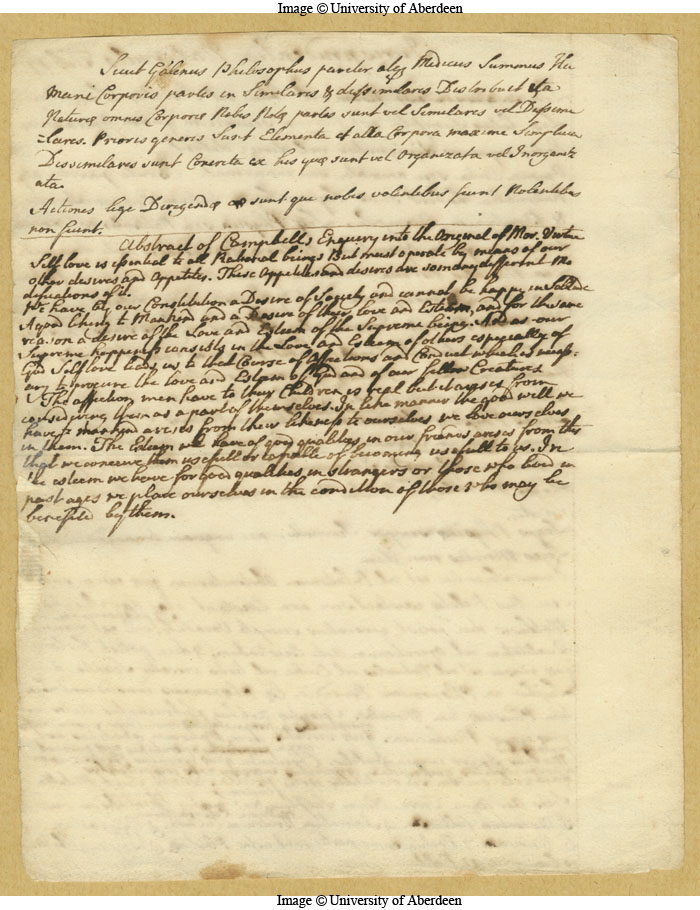 Image © University of Aberdeen
Sicut Galenus Philosophus pariter atq Medicus Summus Hu
mani Corporis partes in Similares & dissimilares Distribuit ita
Naturæ omnis Corporeæ Nobis Notæ partes sunt vel Similares vel Dissimi
=lares. Prioris generis Sunt Elementa et alia Corpora maxime Simplicia
Dissimilares sunt Concreta ex his quæ sunt vel Organizata vel Inorganiz
ata.
Actiones lege Dirigendæ sunt que nobis volentibus fiunt Nolentibus
non fiunt.
Abstract of Campbells Enquiry into the Original of Mor. Virtue
Self love is essential to all Rational beings But must operate by means of our
other desires and Appetites. These Appetites and desires are so many different Mo
difications of it.
We have by our Constitution a Desire of Society and cannot be happy in Solitude
A good liking to Mankind and a Desire of their love and Esteem, and for the same
reason a desire of the Love and Esteem of the Supreme being. And as our
Supreme happiness consists in the Love and Esteem of others especially of
God Self love leads us to that Course of Affections and Conduct which is necess-
ary to procure the Love and Esteem of God and of our fellow Creatures
The affection men have to their Children is real but it arises from
considering them as a part of themselves. In like manner the good will we
have to mankind arises from their likeness to ourselves we love ourselves
in them. The Esteem we have of good qualities in our friends arises from this
that we conceive them usefull or capable of becoming usefull to us. In
the esteem we have for good qualities in strangers or those who lived in
past ages we place ourselves in the condition of those who may be
benefited by them.
Image © University of Aberdeen